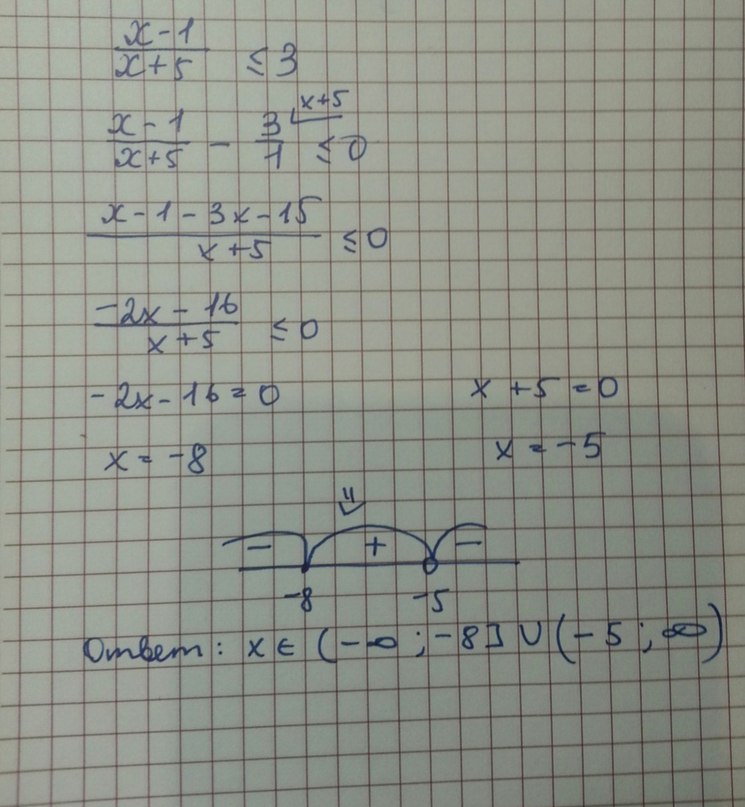 x-1/x+5 ≤ 3
x-1/x+5 - 3/1 (x+5 ≤ 0
x-1-3x-15/x+5 ≤ 0
-2x-16/x+5 ≤ 0
-2x-16=0 x+5=0
x=-8 x=-5
- + -
-8 -5
Ответ: x ∈ (-∞; -8] ∪ (-5; ∞)